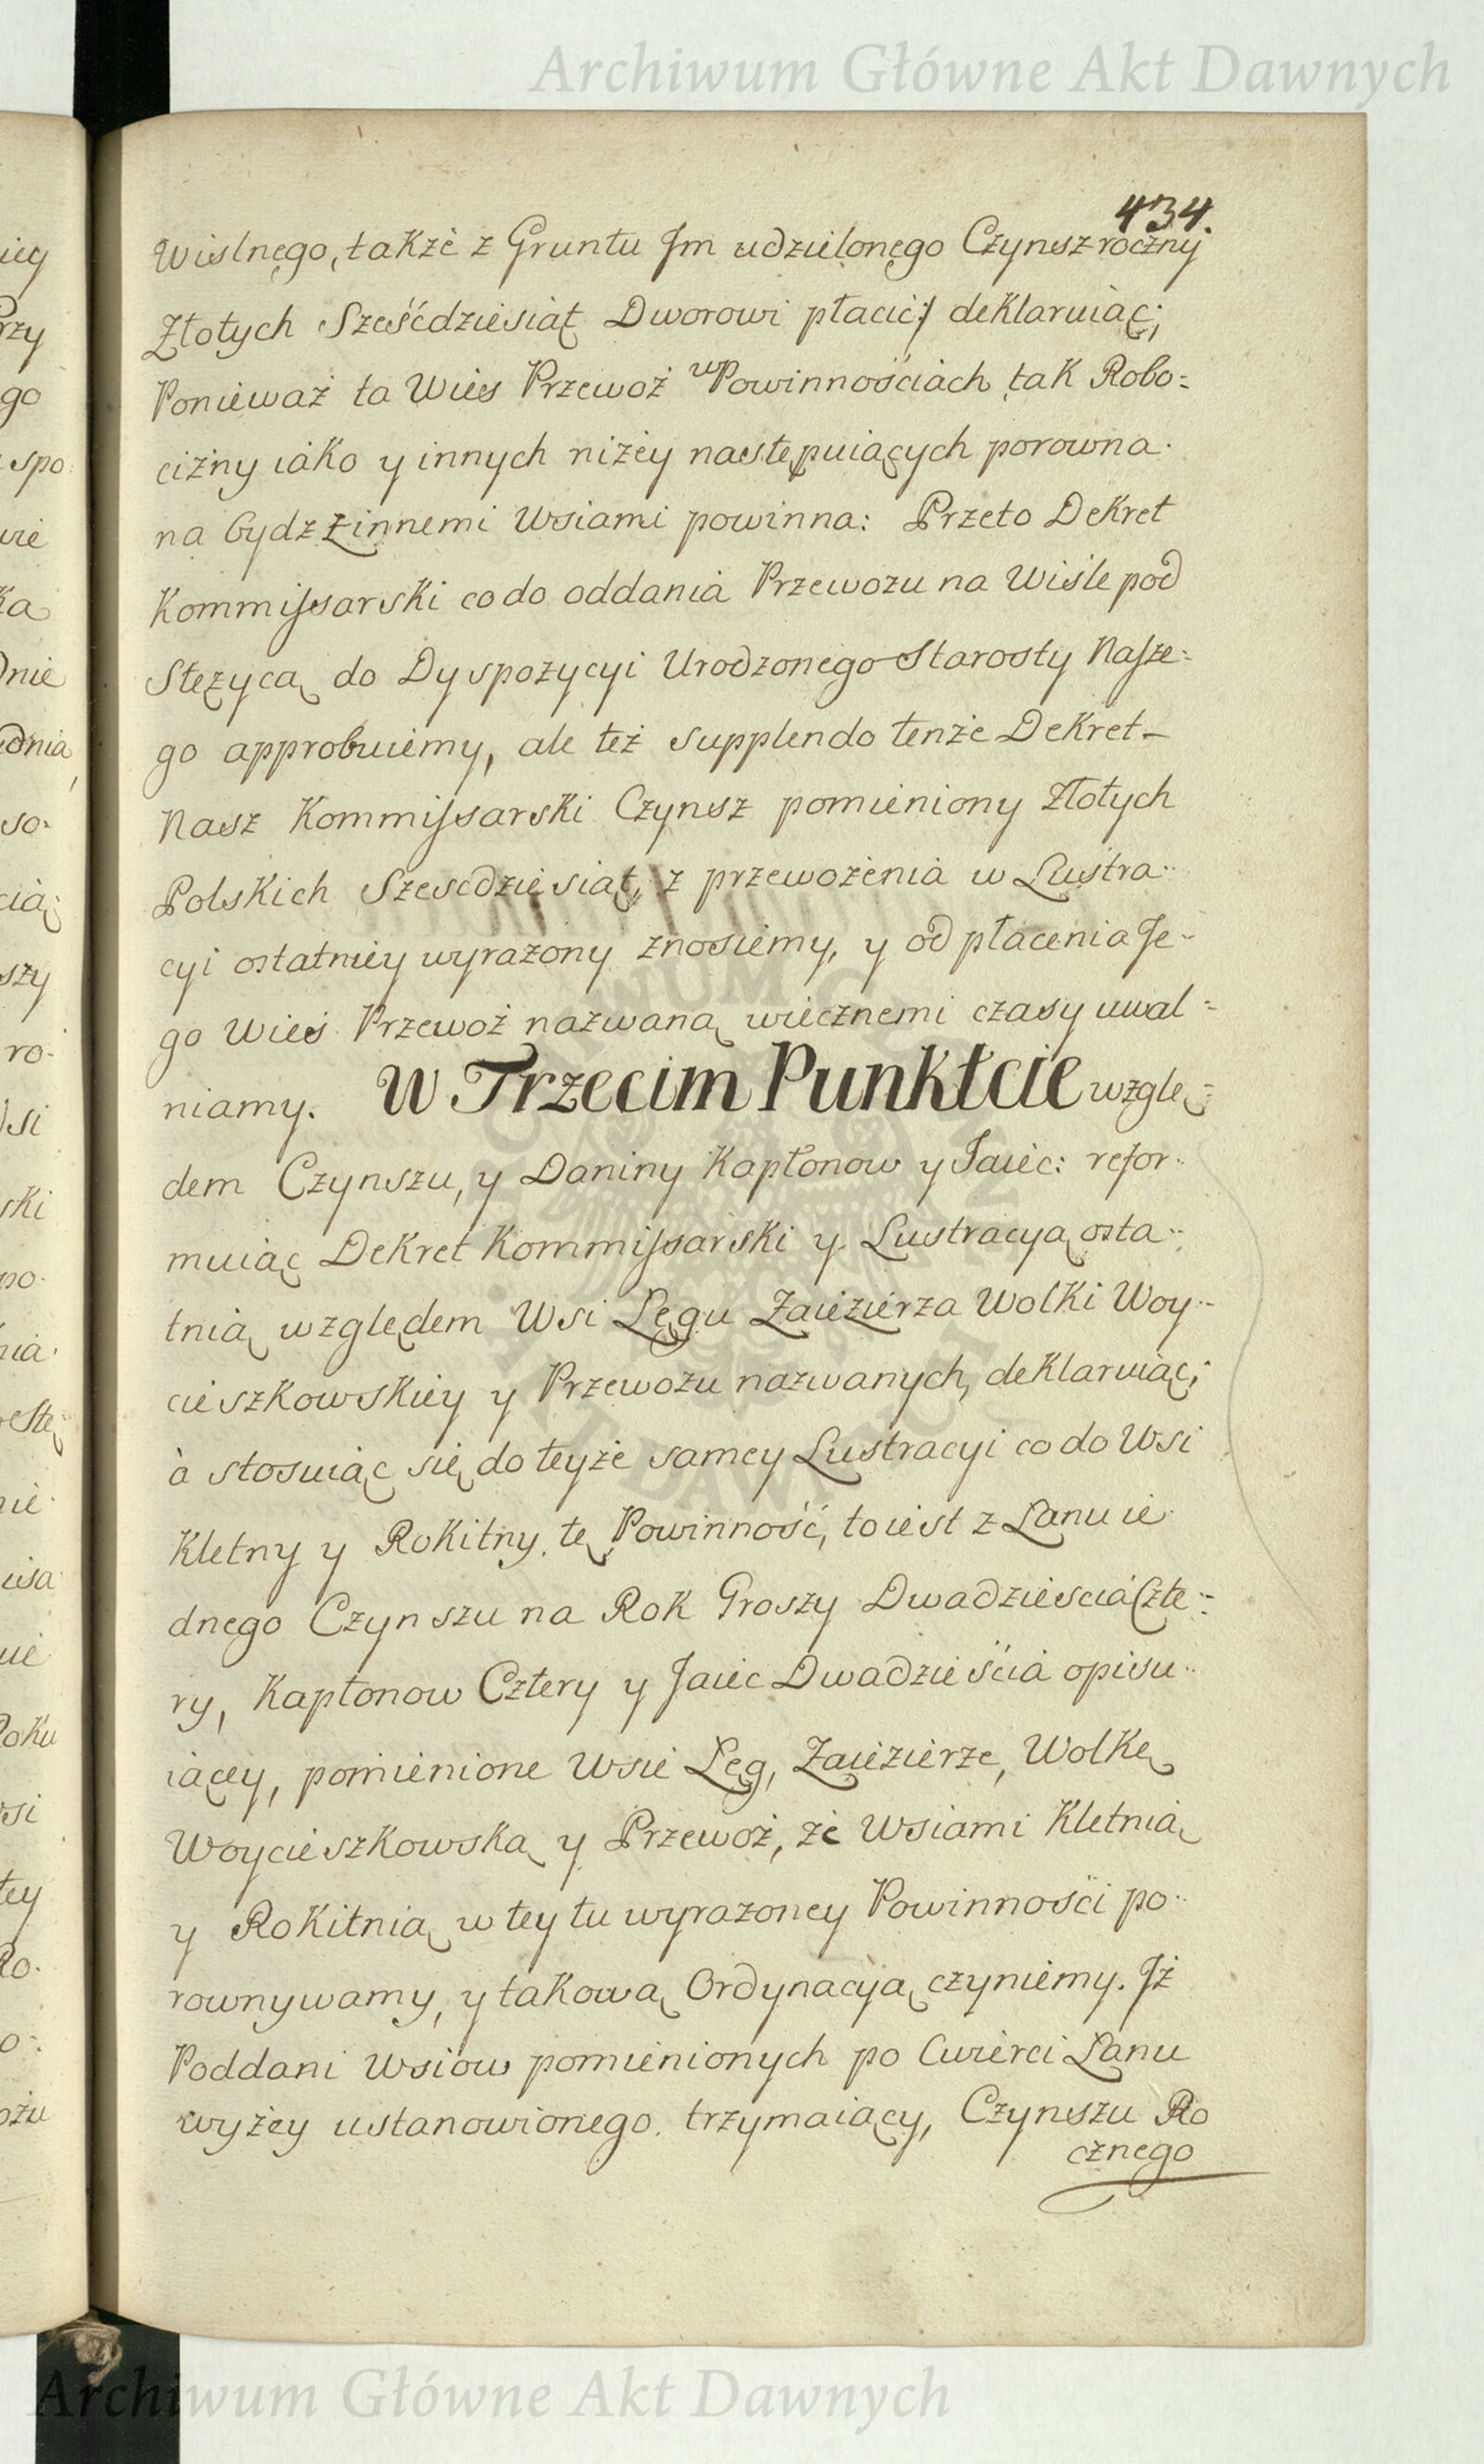 Archiwum Główne Akt Dawnych
434.
Wislnego, takze z Gruntu Jm udzielonego Czynsz roczny
Złotych Sześćdziesiąt Dworowi płacić/ deklaruiąc;
Ponieważ ta Wies Przewoż w Powinnościach tak Robo=
cizny iako y innych niżey następuiących porowna-
na bydz z innemi Wsiami powinna: Przeto Dekret
Kommissarski co do oddania Przewozu na Wiśle pod
Stęzycą do Dyspozycyi Urodzonego Starosty Nasze=
go approbuiemy, ale też supplendo tenże Dekret
Nasz Kommissarski Czynsz pomieniony Złotych
Polskich Szescdziesiąt, z przewożenia w Lustra-
cyi ostatniey wyrazony znosiemy, y od płacenia Je-
go Wieś Przewoż nazwaną wiecznemi czasy uwal=
niamy. W Trzecim Punktcie wzglę=
dem Czynszu, y Daniny Kapłonow y Jaiec: refor-
muiąc Dekret Kommissarski y Lustracyą osta-
tnią względem Wsi Lęgu Zaiezierza Wolki Woy-
cieszkowskiey y Przewozu nazwanych, deklaruiąc;
à stosuiąc się do teyże samey Lustracyi co do Wsi
Kletny y Rokitny, tę Powinność, to iest z Łanu ie-
dnego Czynszu na Rok Groszy Dwadzieścia Czte=
ry, Kapłonow Cztery y Jaiec Dwadzieścia opisu-
iącey, pomienione Wsie Lęg, Zaiezierze, Wolkę
Woycieszkowską y Przewoż, że Wsiami Kletnią
y Rokitnią w tey tu wyrazoney Powinności po-
rownywamy, y takową Ordynacyą czyniemy. Jż
Poddani Wsiow pomienionych po Cwierci Łanu
wyżey ustanowionego trzymaiący, Czynszu Ro
cznego
Archiwum Główne Akt Dawnych